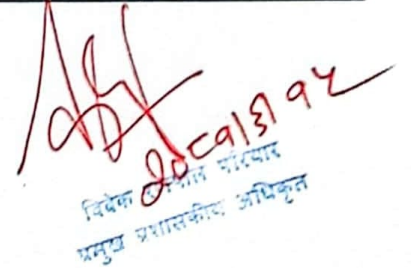 २०८१।३।१५
विवेक परियार
प्रमुख प्रशासकीय अधिकृत